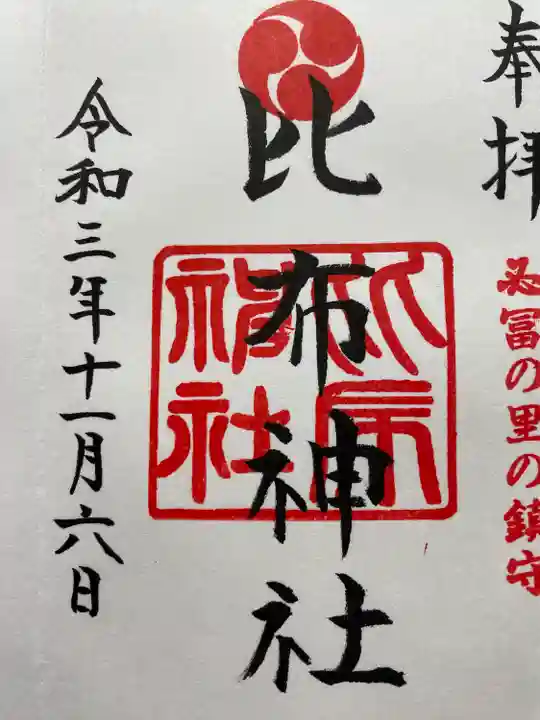 奉拝
必冨の里の鎮守
比布神社
令和三年十一月六日